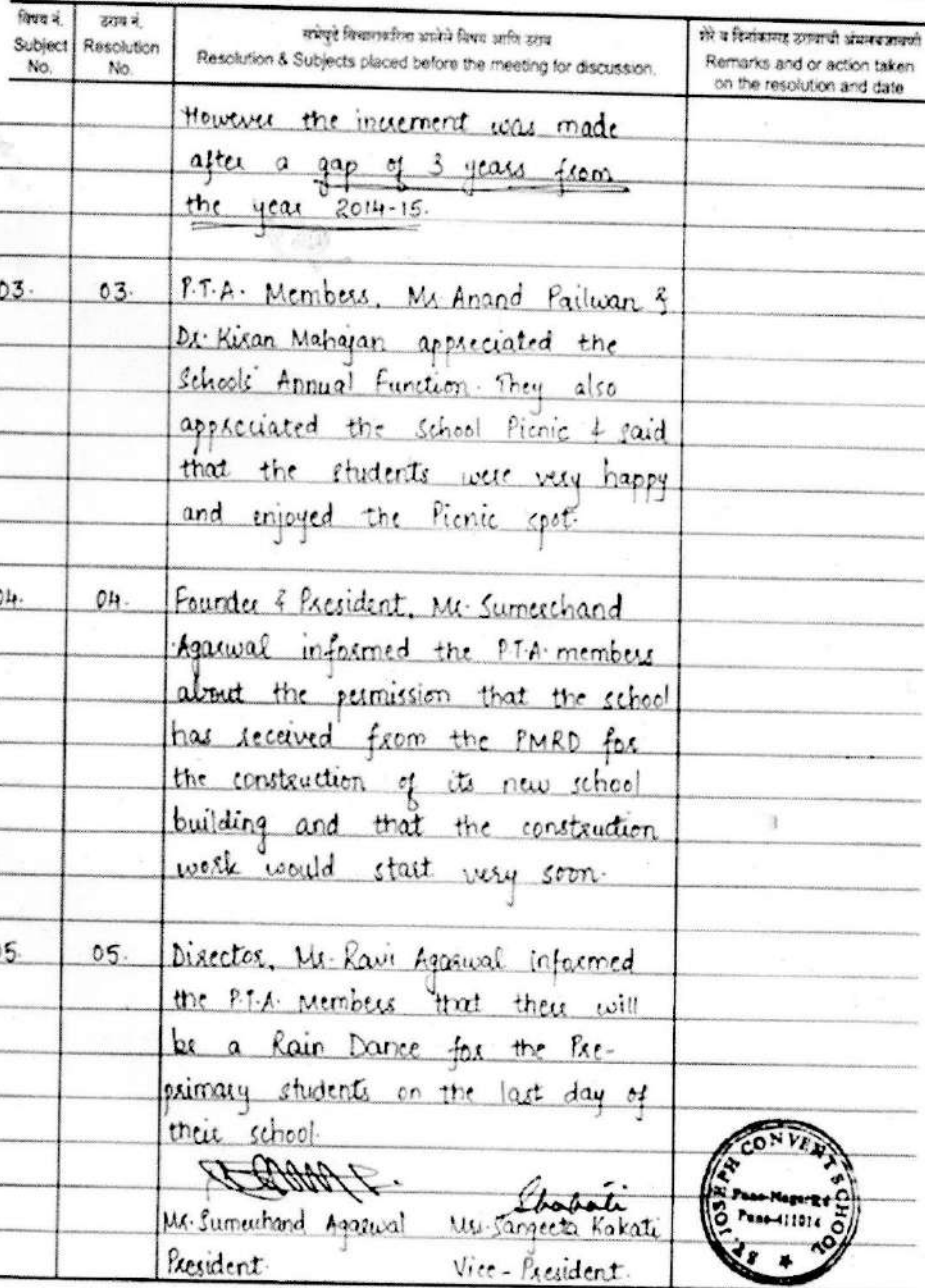 विषय नं.
Subject No.
ठराव नं.
Resolution No.
सभेपुढे विचाराकरिता आलेले विषय आणि ठराव
Resolution & Subjects placed before the meeting for discussion.
शेरे व दिनांकासह ठरावाची अंमलबजावणी
Remarks and or action taken
on the resolution and date
However the increment was made
after a gap of 3 years from
the year 2014-15.
03. 03. P.T.A. Members, Mr. Anand Pailwan &
Dr. Kiran Mahajan appreciated the
Schools' Annual Function. They also
appreciated the School Picnic & said
that the students were very happy
and enjoyed the Picnic spot.
04. 04. Founder & President, Mr. Sumerchand
Agarwal informed the P.T.A. members
about the permission that the school
has received from the PMRD for
the construction of its new school
building and that the construction
work would start very soon.
05. 05. Director, Mr. Ravi Agarwal informed
the P.T.A. Members that there will
be a Rain Dance for the Pre-
primary students on the last day of
their school.
Mr. Sumerchand Agarwal Mrs. Sangeeta Kakati
President. Vice-President.
ST. JOSEPH CONVENT SCHOOL
Pune-Nagar Rd
Pune-411014